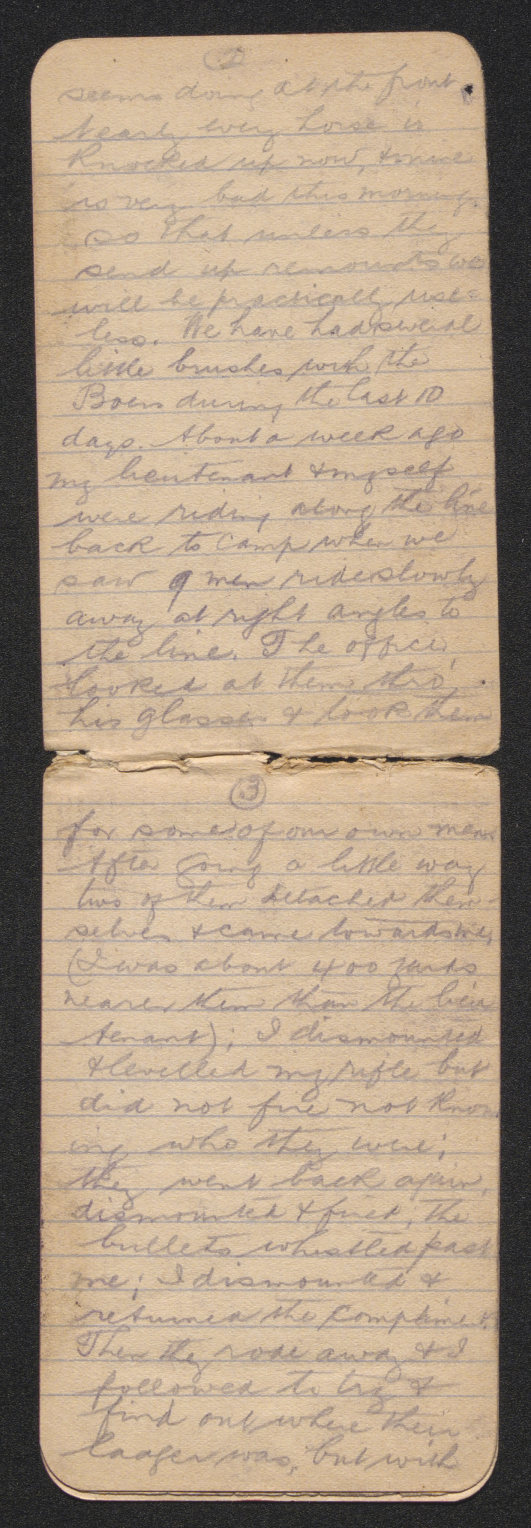 2
seems doing at the front.
Nearly every horse is
knocked up now, & mine
is very bad this morning,
so that unless they
send up remounts we
will be practically use-
less. We have had several
little brushes with the
Boers during the last 10
days. About a week ago
my lieutenant & myself
were riding along the line
back to camp when we
saw 9 men ride slowly
away at right angles to
the line. The officer
looked at them thro'
his glasses & took them
3
for some of our own men.
After going a little way
two of them detached them-
selves & came towards me,
(I was about 400 yards
nearer them than the lieu
tenant); I dismounted
& levelled my rifle but
did not fire not know
ing who they were;
they went back again,
dismounted & fired, the
bullets whistled past
me; I dismounted &
returned the compliment.
Then they rode away & I
followed to try &
find out where their
laager was, but with